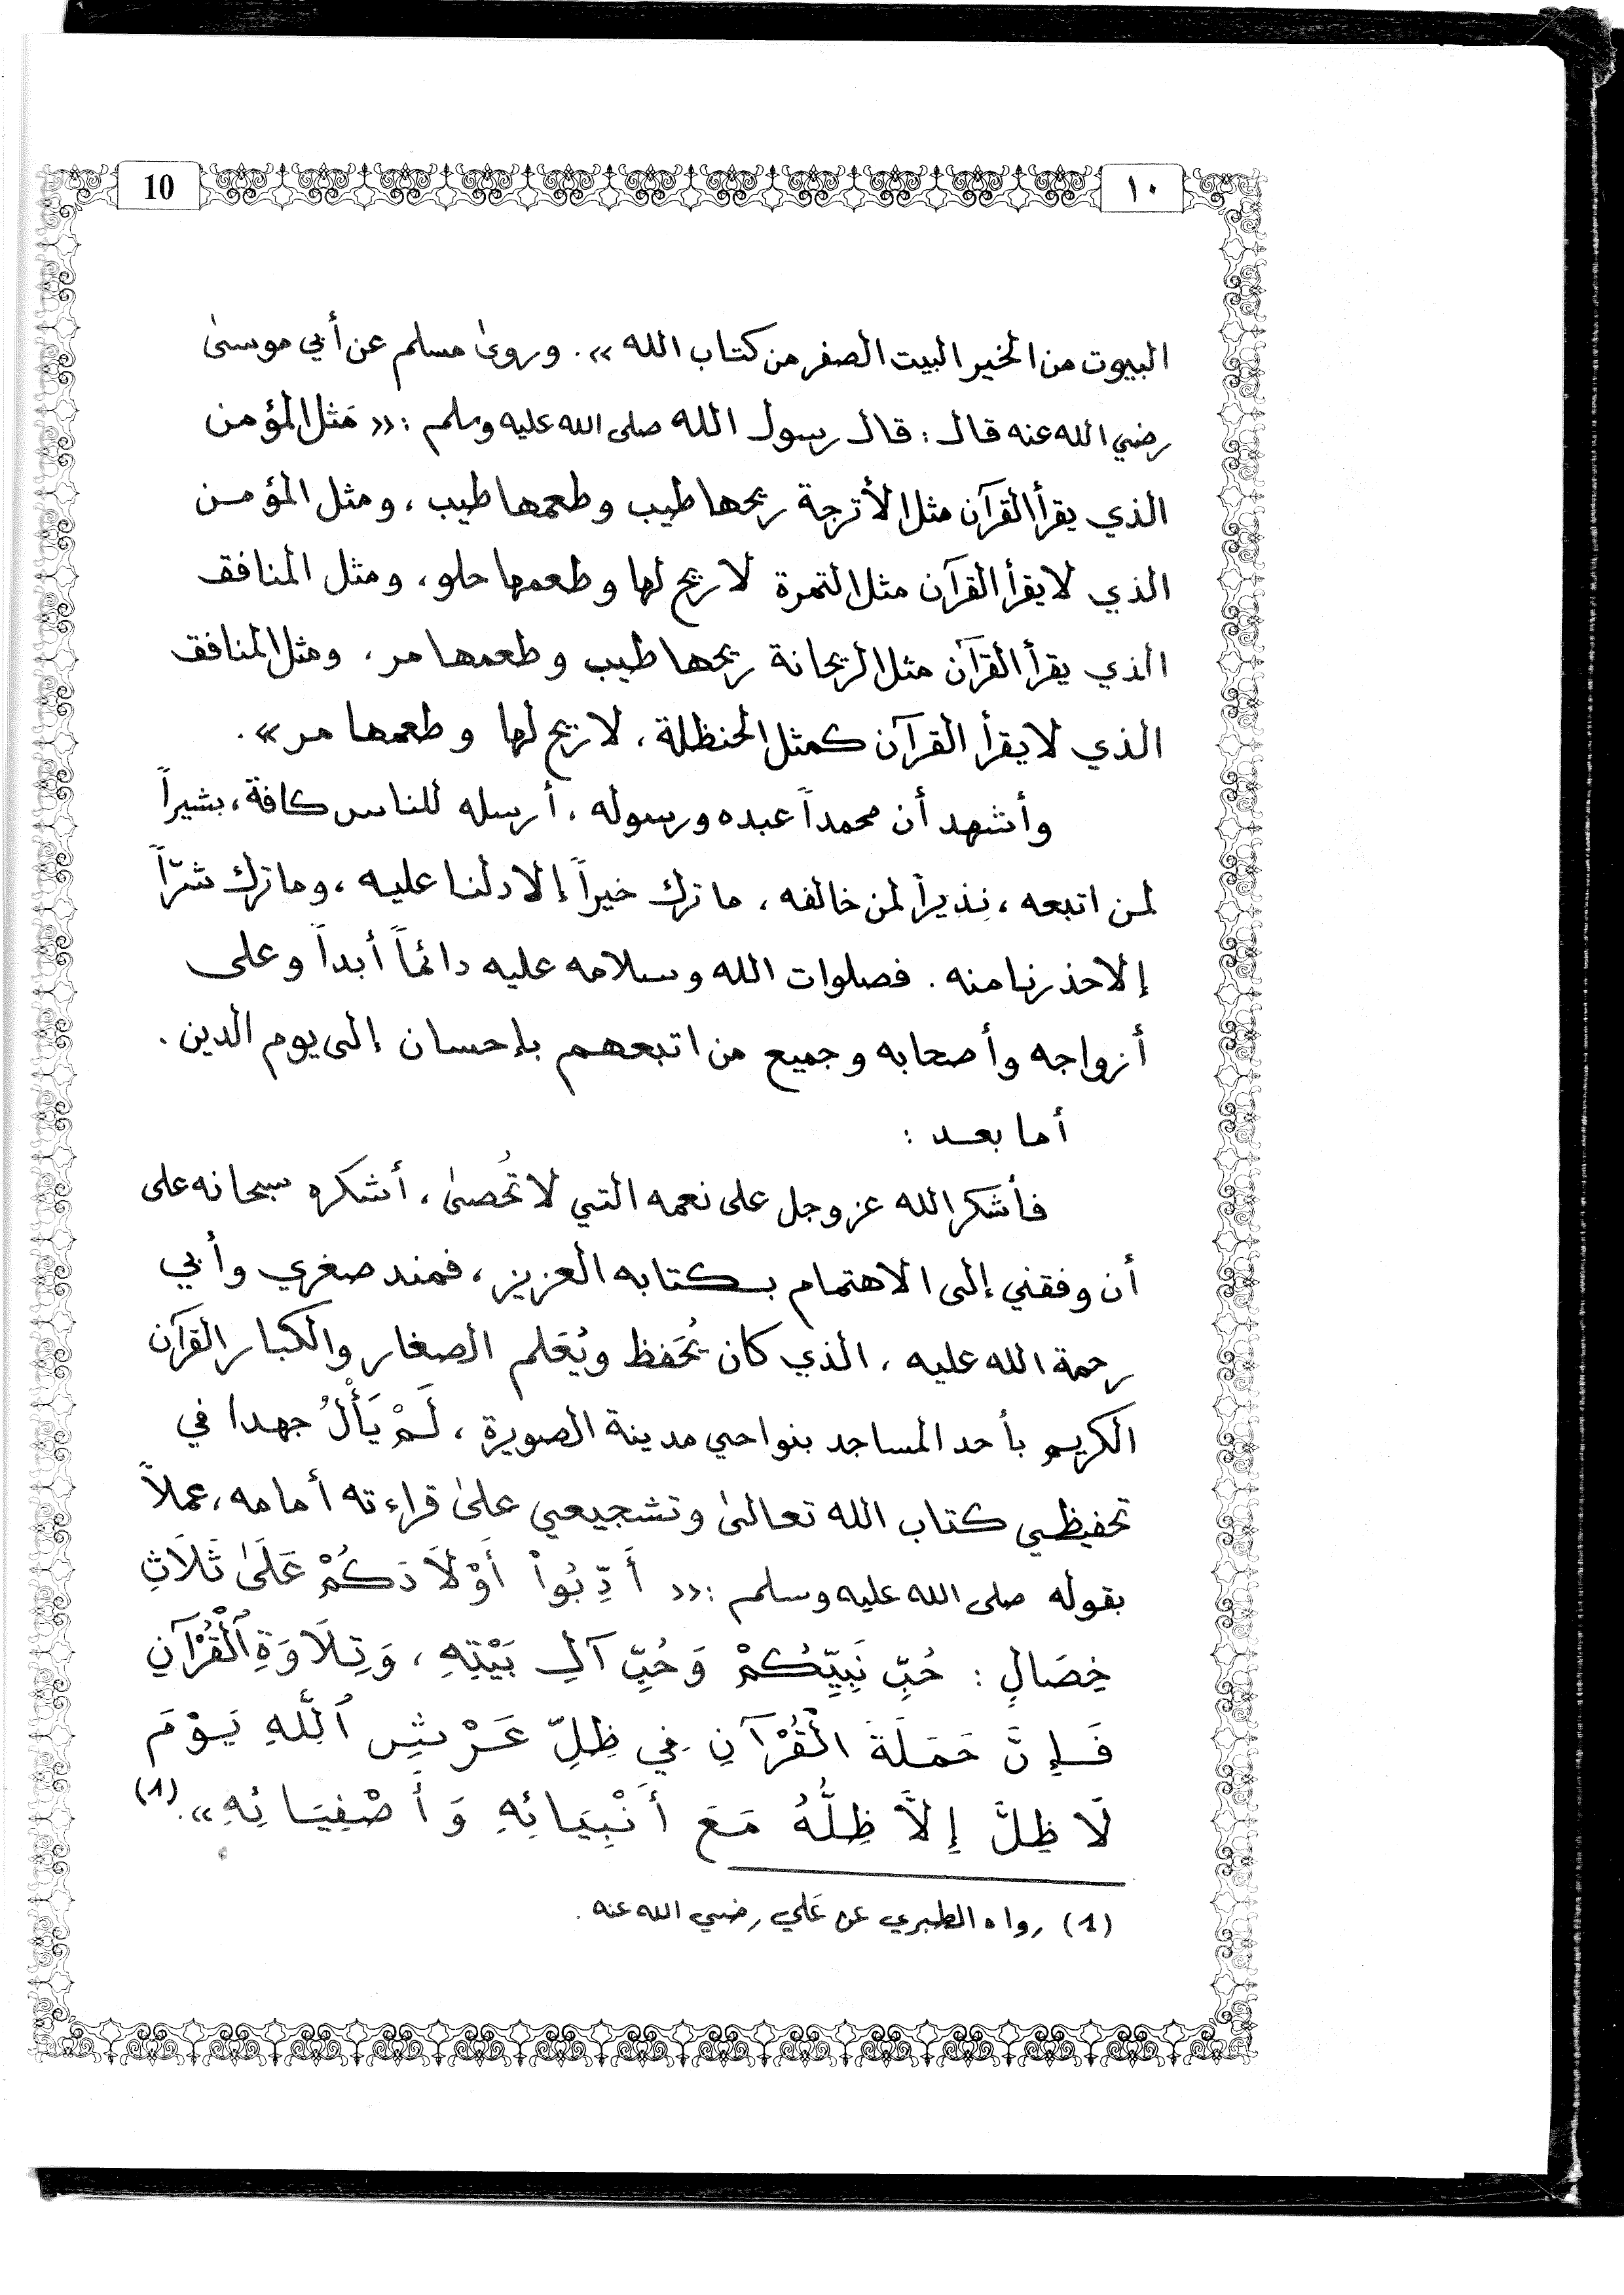 10 ١٠
البيوت من الخير البيت الصفر من كتاب الله ». وروىٰ مسلم عن أبي موسىٰ
رضي الله عنه قال : قال رسول الله صلى الله عليه وسلم :« مَثل المؤمن
الذي يقرأ القرآن مثل الأترجة ريحها طيب وطعمها طيب ، ومثل المؤمن
الذي لا يقرأ القرآن مثل التمرة لا ريح لها وطعمها حلو ، ومثل المنافق
الذي يقرأ القرآن مثل الريحانة ريحها طيب وطعمها مر ، ومثل المنافق
الذي لا يقرأ القرآن كمثل الحنظلة ، لا ريح لها وطعمها مر ».
وأشهد أن محمداً عبده ورسوله ، أرسله للناس كافة ، بشيراً
لمن اتبعه ، نذيراً لمن خالفه ، ما ترك خيراً إلا دلنا عليه ، وما ترك شرّاً
إلا حذرنا منه . فصلوات الله وسلامه عليه دائماً أبداً وعلى
أزواجه وأصحابه وجميع من اتبعهم بإحسان إلى يوم الدين .
أما بعد :
فأشكر الله عز وجل على نعمه التي لا تُحصىٰ ، أشكره سبحانه على
أن وفقني إلى الاهتمام بكتابه العزيز ، فمنذ صغري وأبي
رحمة الله عليه ، الذي كان يُحَفظ ويُعَلم الصغار والكبار القرآن
الكريم بأحد المساجد بنواحي مدينة الصويرة ، لَمْ يَأْلُ جهدا في
تحفيظي كتاب الله تعالىٰ وتشجيعي علىٰ قراءته أمامه ، عملاً
بقوله صلى الله عليه وسلم :« أَدِّبُواْ أَوْلَادَكُمْ عَلَىٰ ثَلَاثِ
خِصَالٍ : حُبِّ نَبِيِّكُمْ وَحُبِّ آلِ بَيْتِهِ ، وَتِلَاوَةِ ٱلْقُرْآنِ
فَإِنَّ حَمَلَةَ الْقُرْآنِ فِي ظِلِّ عَرْشِ ٱللَّهِ يَوْمَ
لَا ظِلَّ إِلَّا ظِلُّهُ مَعَ أَنْبِيَائِهِ وَأَصْفِيَائِهِ ».(1)
(1) رواه الطبري عن عَلي رضي الله عنه .